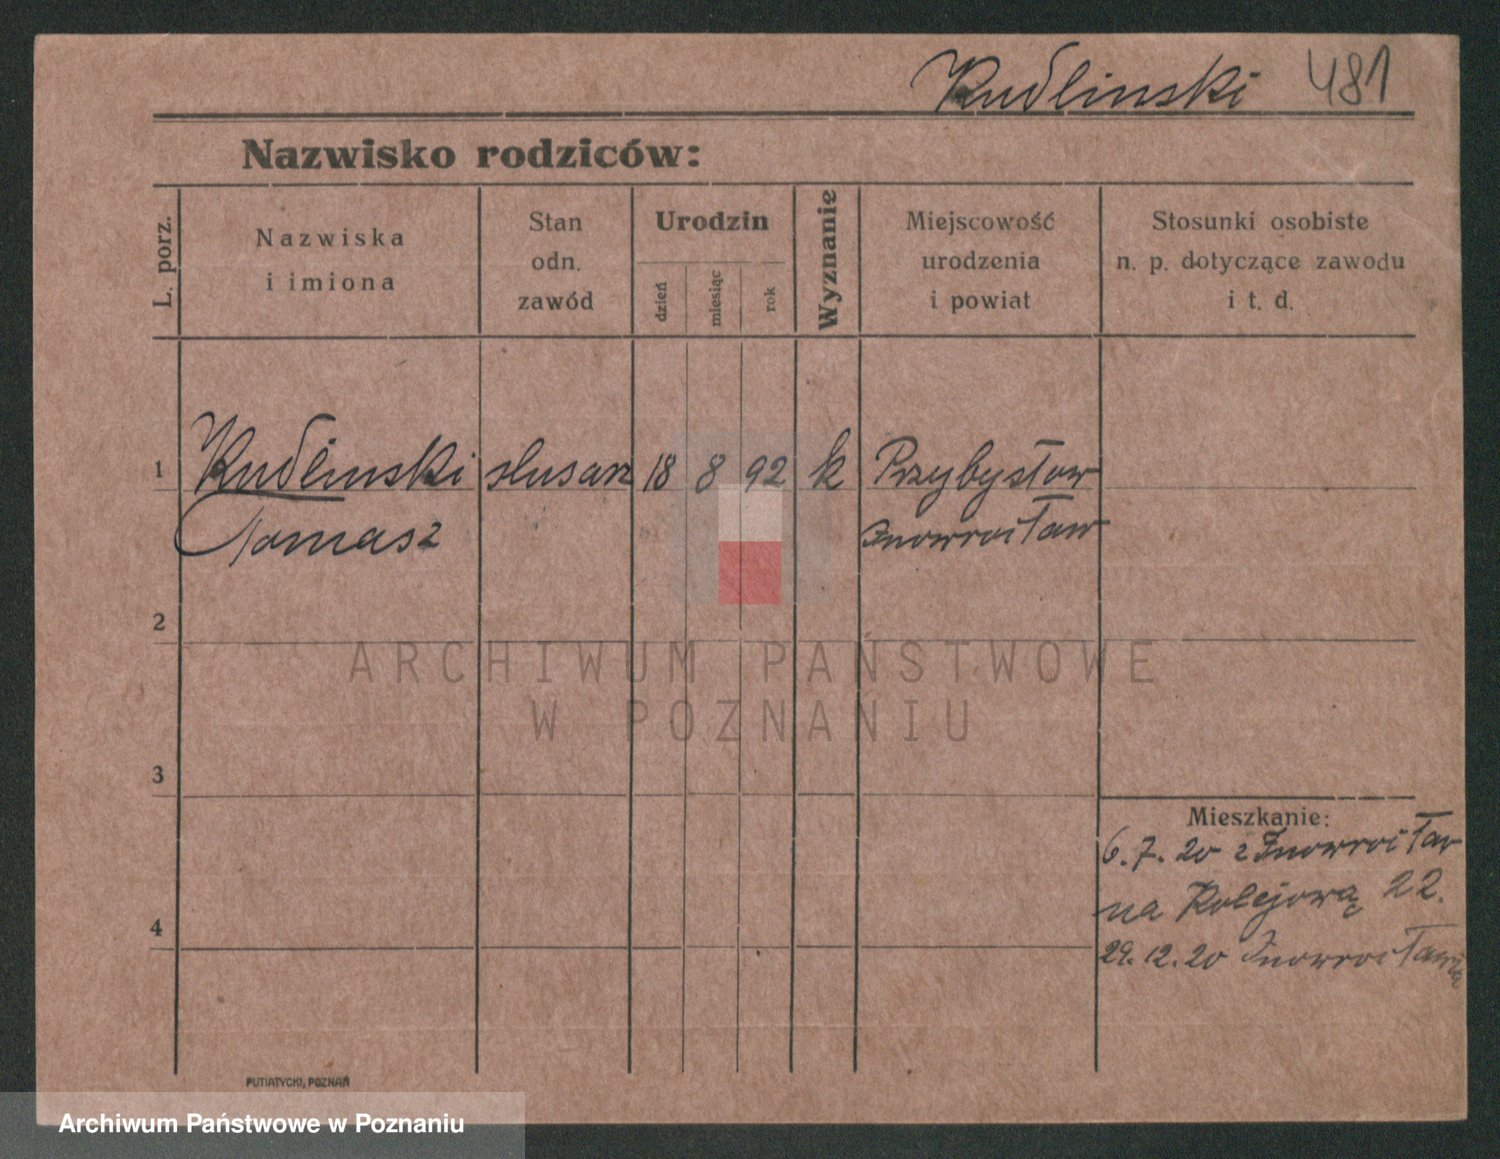 Kudlinski 481
Nazwisko rodziców:
L. porz.
Nazwiska
i imiona
Stan
odn.
zawód
Urodzin
dzień
miesiąc
rok
Wyznanie
Miejscowość
urodzenia
i powiat
Stosunki osobiste
n. p. dotyczące zawodu
i t. d.
1 Kudlinski slusarz 18 8 92 k Przybysław
Tomasz Inowrocław
2
ARCHIWUM PAŃSTWOWE
W POZNANIU
3
Mieszkanie:
6.7.20 z Inowrocław
na Kolejową 22.
4
29.12.20 Inowrocławia
PUTIATYCKI, POZNAŃ
Archiwum Państwowe w Poznaniu